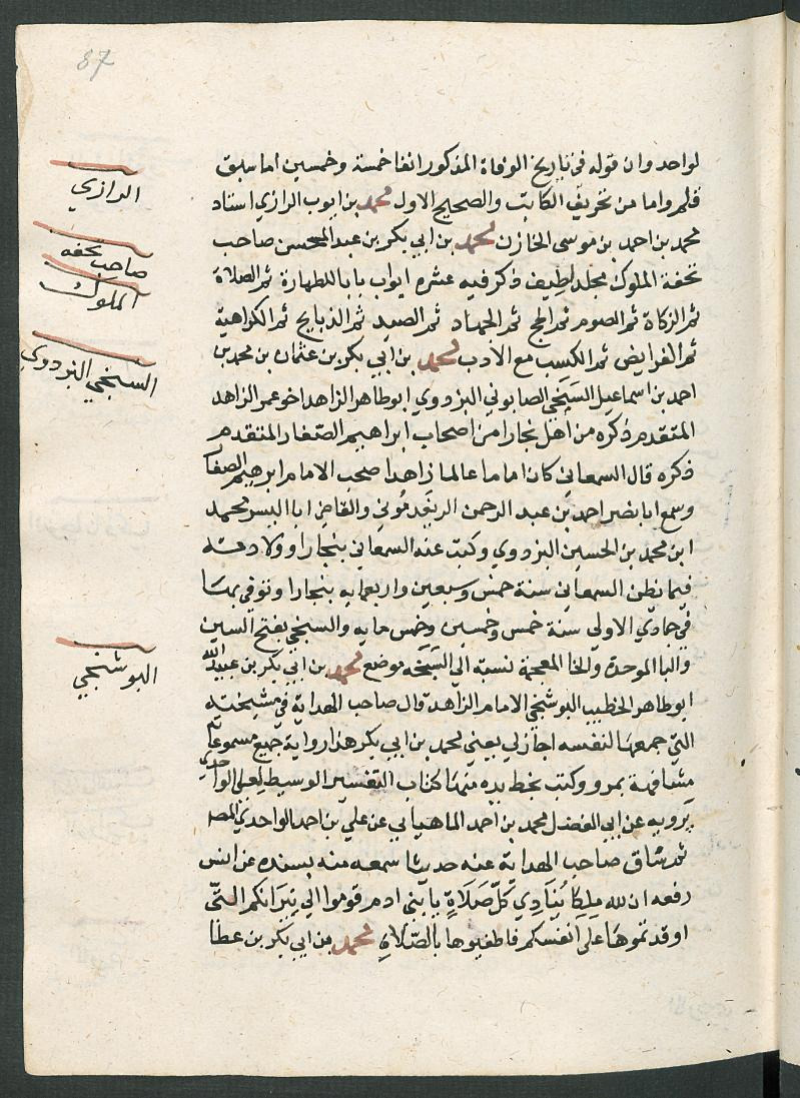 87
لواحد وان قوله في تاريخ الوفاة المذكور انفا خمسة وخمسين اما سبق
قلم واما من تحريف الكاتب والصحيح الاول محمد بن ايوب الرازي استاد
محمد بن احمد بن موسى الخازن محمد بن ابي بكر بن عبد المحسن صاحب
تحفة الملوك مجلد لطيف ذكر فيه عشره ابواب بابا للطهارة ثم الصلاة
ثم الزكاة ثم الصوم ثم الحج ثم الجهاد ثم الصيد ثم الذبايح ثم الكراهية
ثم الفرايض ثم الكسب مع الادب محمد بن ابي بكر بن عثمان بن محمد بن
احمد بن اسماعيل السبخي الصابوني البزدوي ابو طاهر الزاهد اخو عمر الزاهد
المتقدم ذكره من اهل بخارا من اصحاب ابراهيم الصفار المتقدم
ذكره قال السمعاني كان اماما عالما زاهدا صحب الامام ابرهيم الصفار
وسمع ابا نصر احمد بن عبد الرحمن الريغدموني والقاضي ابا اليسر محمد
ابن محمد بن الحسين البزدوي وكتب عنه السمعاني ببخارا وولادته
فيما نظن السمعاني سنة خمس وسبعين واربعمايه ببخارا وتوفي بها
في جمادي الاولي سنة خمس وخمسين وخمس مايه والسبخي بفتح السين
والبا الموحدة والخا المعجمة نسبة الي السبخه موضع محمد بن ابي بكر بن عبد الله
ابو طاهر الخطيب البوشنجي الامام الزاهد قال صاحب الهداية في مشيخته
التي جمعها لنفسه اجاز لي يعني محمد بن ابي بكر هذا رواية جميع مسموعاته
مشافهة بمرو وكتب بخط يده منها كتاب التفسير الوسيط لعلي الواحدي
يرويه عن ابي الفضل محمد بن احمد الماهياني عن علي بن احمد الواحدي المصـ
ثم ساق صاحب الهداية عنه حديثا سمعه منه بسنده عن انس
رفعه ان لله ملكا ينادي كل صلاة يا بني ادم قوموا الي نيرانكم التي
اوقدتموها على انفسكم فاطفيوها بالصلاة محمد بن ابي بكر بن عطا
الرازي
صاحب تحفه
الملوك
السبخي البزدوي
البوشنجي